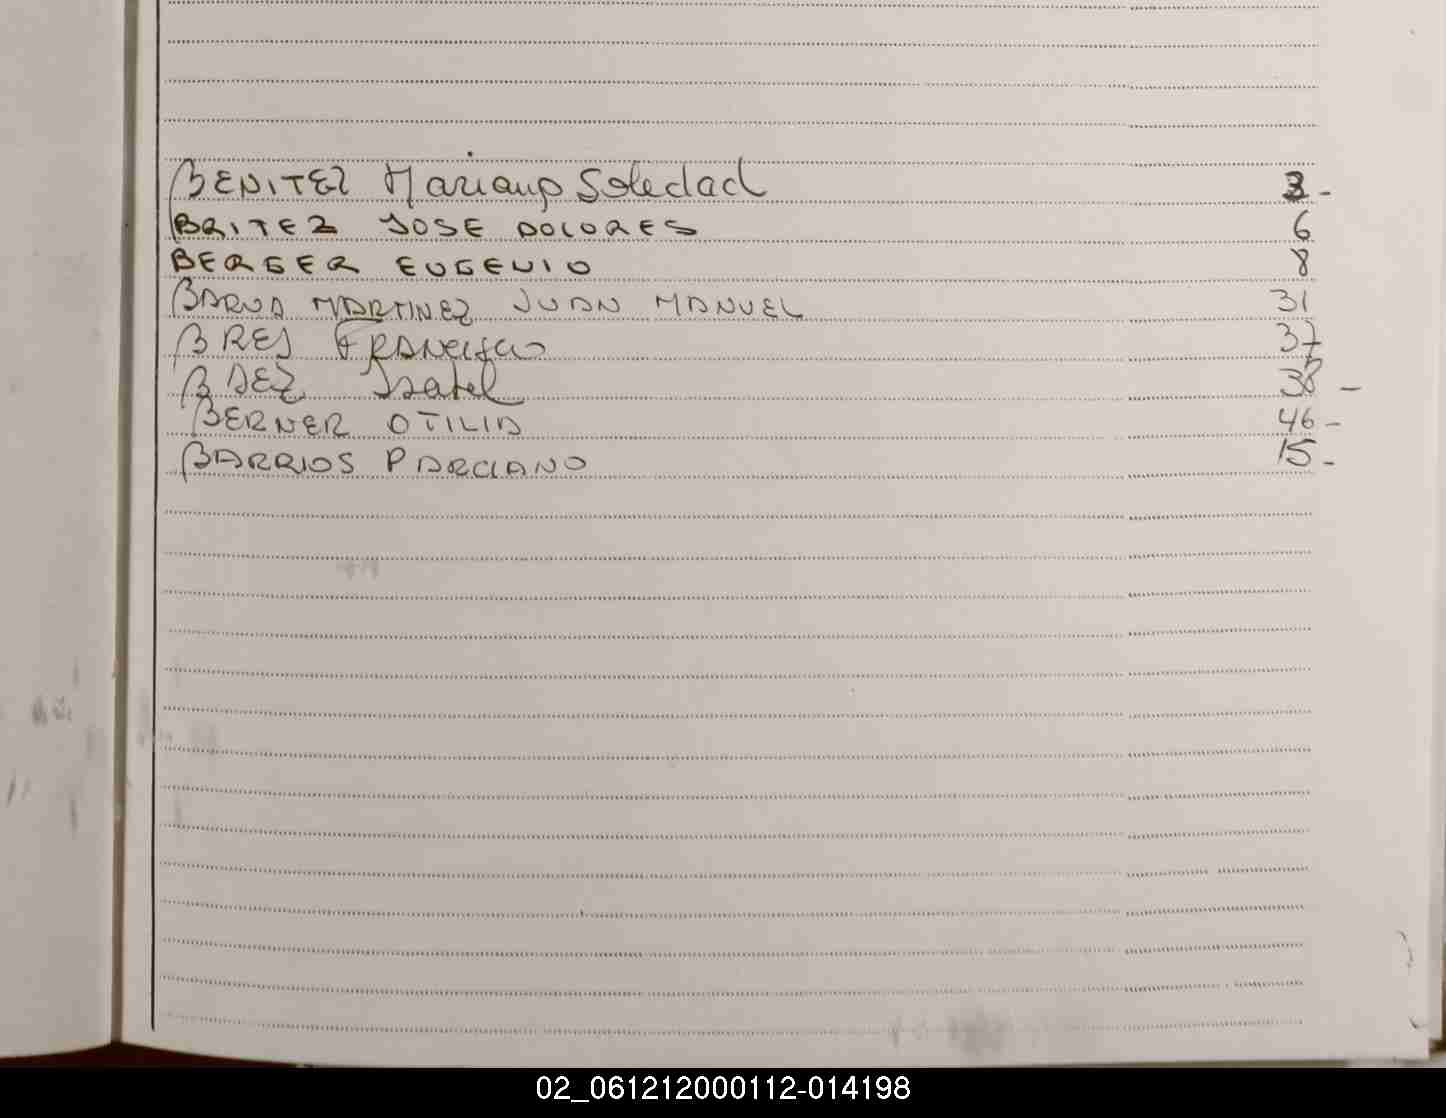 BENITEZ Mariano Soledad 3 -
BRITEZ JOSE DOLORES 6
BERGER EUGENIO 8
BARUA MARTINEZ JUAN MANUEL 31
BRES FRANCISCO 37
BAEZ Isabel 38 -
BERNER OTILIA 46 -
BARRIOS PARCIANO 15 -
02_061212000112-014198